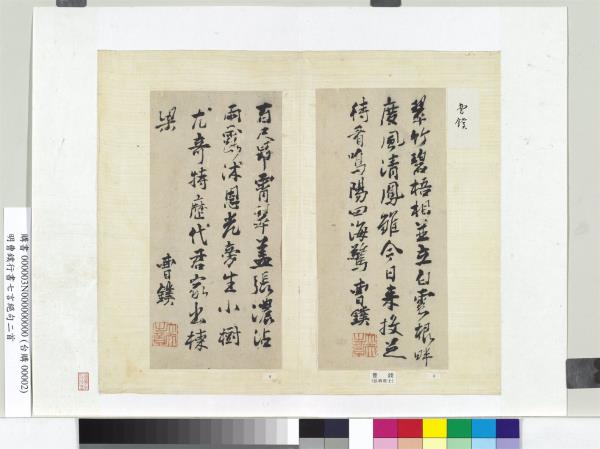 曹鏷
翠竹碧梧相並立白雲根畔
度風清鳳雛今日来投足
待看鳴陽四海驚 曹鏷
百尺昂霄翠盖張濃沾
雨露沐恩光旁生小樹
尤奇特歷代君家出棟
梁
曹鏷
曹鏷
購書 000003N000000000 (台購 00002)
明曹鏷行書七言絕句二首